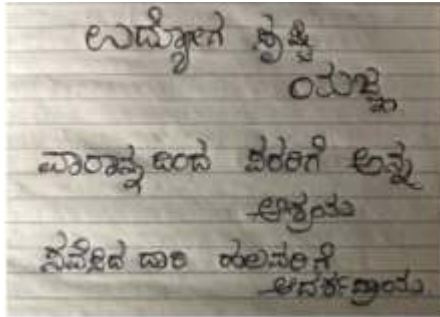 ಉದ್ಯೋಗ ಸೃಷ್ಟಿ
ಯಜ್ಞ
ವಾರಾನ್ನ ದಿಂದ ಪರರಿಗೆ ಅನ್ನ
ಆಶ್ರಯ
ಸವೆಸಿದ ದಾರಿ ಹಲವರಿಗೆ
ಆದರ್ಶಪ್ರಾಯ